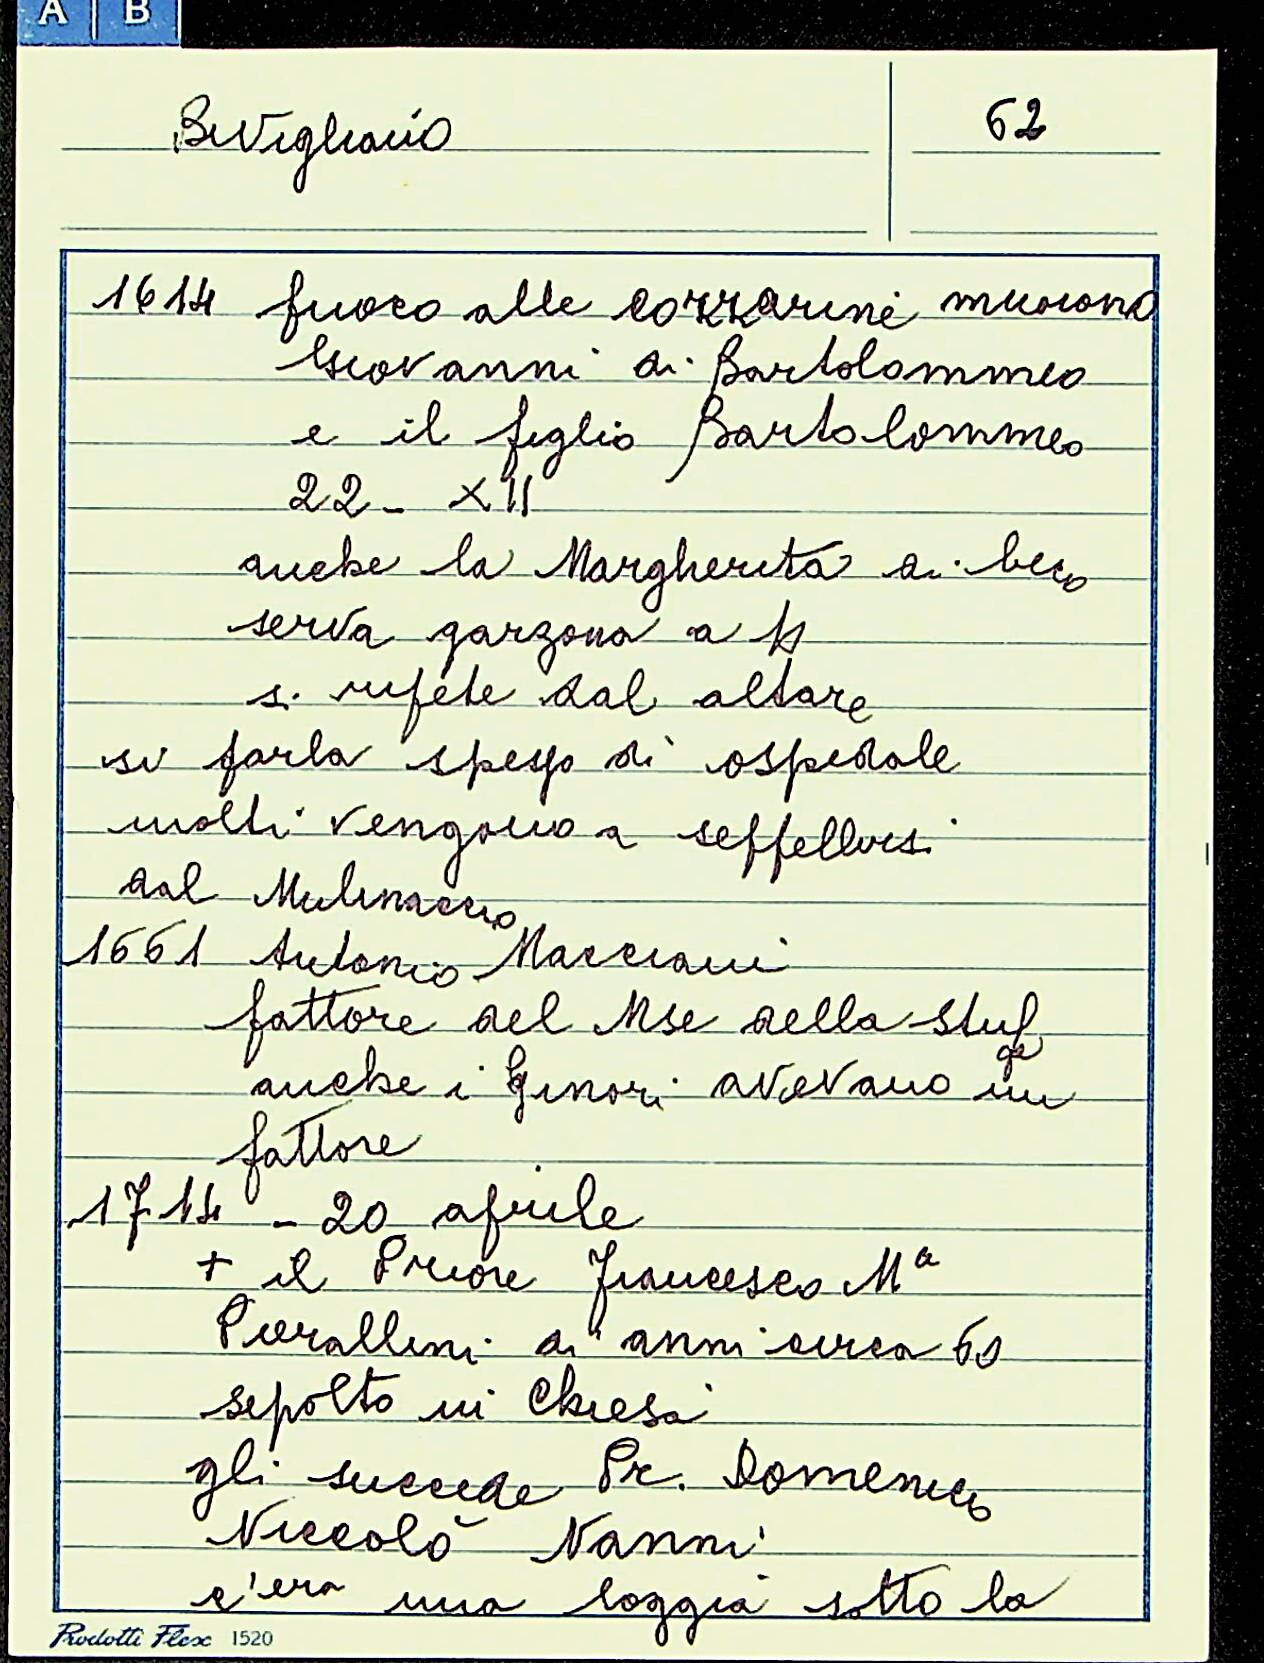 A B
Bivigliano
62
1614 fuoco alle cozzarine muoiono
Giovanni di Bartolommeo
e il figlio Bartolommeo
22 - XII
anche la Margherita di beco
serva garzona a
si ripete dal altare
si parla spesso di ospedale
molti vengono a seppellirsi
dal Mulinaccio
1661 Antonio Macciani
fattore del Mse della Stufa
anche i Ginori avevano un
fattore
1714 - 20 aprile
+ il Priore Francesco Mª
Pierallini di anni circa 60
sepolto in Chiesa
gli succede Pr. Domenico
Niccolò Nanni
c'era una loggia sotto la
Prodotti Flex 1520